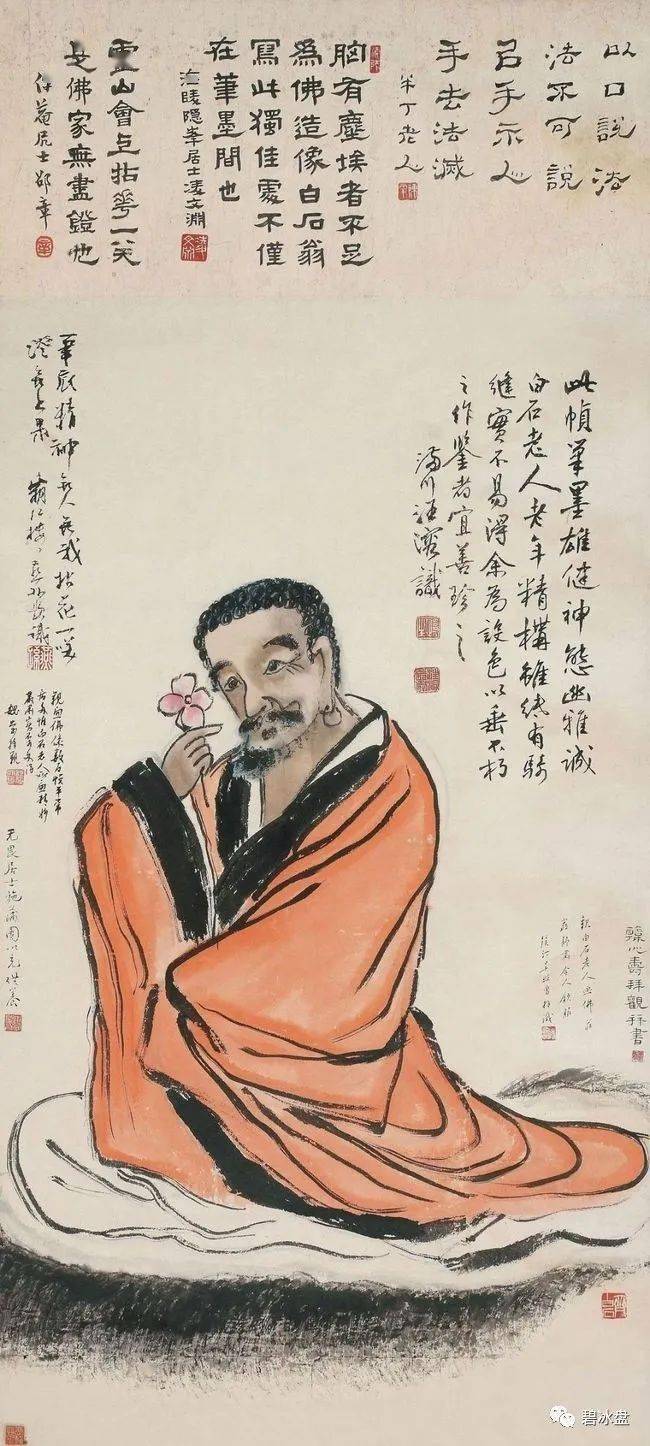 以口說法
法不可說
㠯手示人
手去法滅
半丁老人
胸有塵埃者不足
為佛造像白石翁
寫此獨佳處不僅
在筆墨間也
海陵隱峯居士凌文淵
靈山會上拈花一笑
是佛家無盡鐙也
居士邵章
此幀筆墨雄健神態幽雅誠
白石老人老年精構雖然有騎
縫實不易得余為設色以垂不朽
之作鑒者宜善珍之
汪溶識
筆底精神無人無我拈花一笑
證無上果
无畏居士施蒲團以充供養
心壽拜觀并書
碧水盘